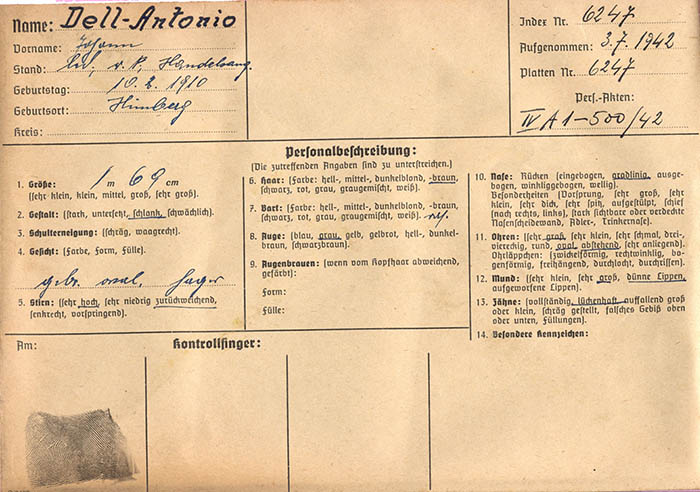 Name: Dell-Antonio
Vorname: Johann
Stand: led, r. k, Handelsang.
Geburtstag: 10. 2. 1910
Geburtsort: Himberg
Kreis:
Index Nr. 6247
Aufgenommen: 3.7.1942
Platten Nr. 6247
Pers.-Akten:
IV A 1-500/42
Personalbeschreibung:
(Die zutreffenden Angaben sind zu unterstreichen.)
1. Größe: 1 m 69 cm
(sehr klein, klein, mittel, groß, sehr groß).
2. Gestalt: (stark, untersetzt, schlank, schwächlich).
3. Schulterneigung: (schräg, waagrecht).
4. Gesicht: (Farbe, Form, Fülle).
gebr. oval, hager
5. Stirn: (sehr hoch, sehr niedrig zurückweichend,
senkrecht, vorspringend).
6. Haar: (Farbe: hell-, mittel-, dunkelblond, -braun,
schwarz, rot, grau, graugemischt, weiß).
7. Bart: (Farbe: hell-, mittel-, dunkelblond, -braun,
schwarz, rot, grau, graugemischt, weiß). ras.
8. Auge: (blau, grau, gelb, gelbrot, hell-, dunkel-
braun, schwarzbraun).
9. Augenbrauen: (wenn vom Kopfhaar abweichend,
gefärbt):
Form:
Fülle:
10. Nase: Rücken (eingebogen, gradlinig, ausge-
bogen, winkliggebogen, wellig).
Besonderheiten (Vorsprung, sehr groß, sehr
klein, sehr dick, sehr spitz, aufgestülpt, schief
(nach rechts, links), stark sichtbare oder verdeckte
Nasenscheidewand, Adler-, Trinkernase).
11. Ohren: (sehr groß, sehr klein, sehr schmal, drei-,
viereckig, rund, oval abstehend, sehr anliegend).
Ohrläppchen: (zwickelförmig, rechtwinklig, bo-
genförmig, freihängend, durchlocht, durchrissen).
12. Mund: (sehr klein, sehr groß, dünne Lippen,
aufgeworfene Lippen).
13. Zähne: (vollständig, lückenhaft auffallend groß
oder klein, schräg gestellt, falsches Gebiß oben
oder unten, Füllungen).
14. Besondere Kennzeichen:
Am:
Kontrollfinger: